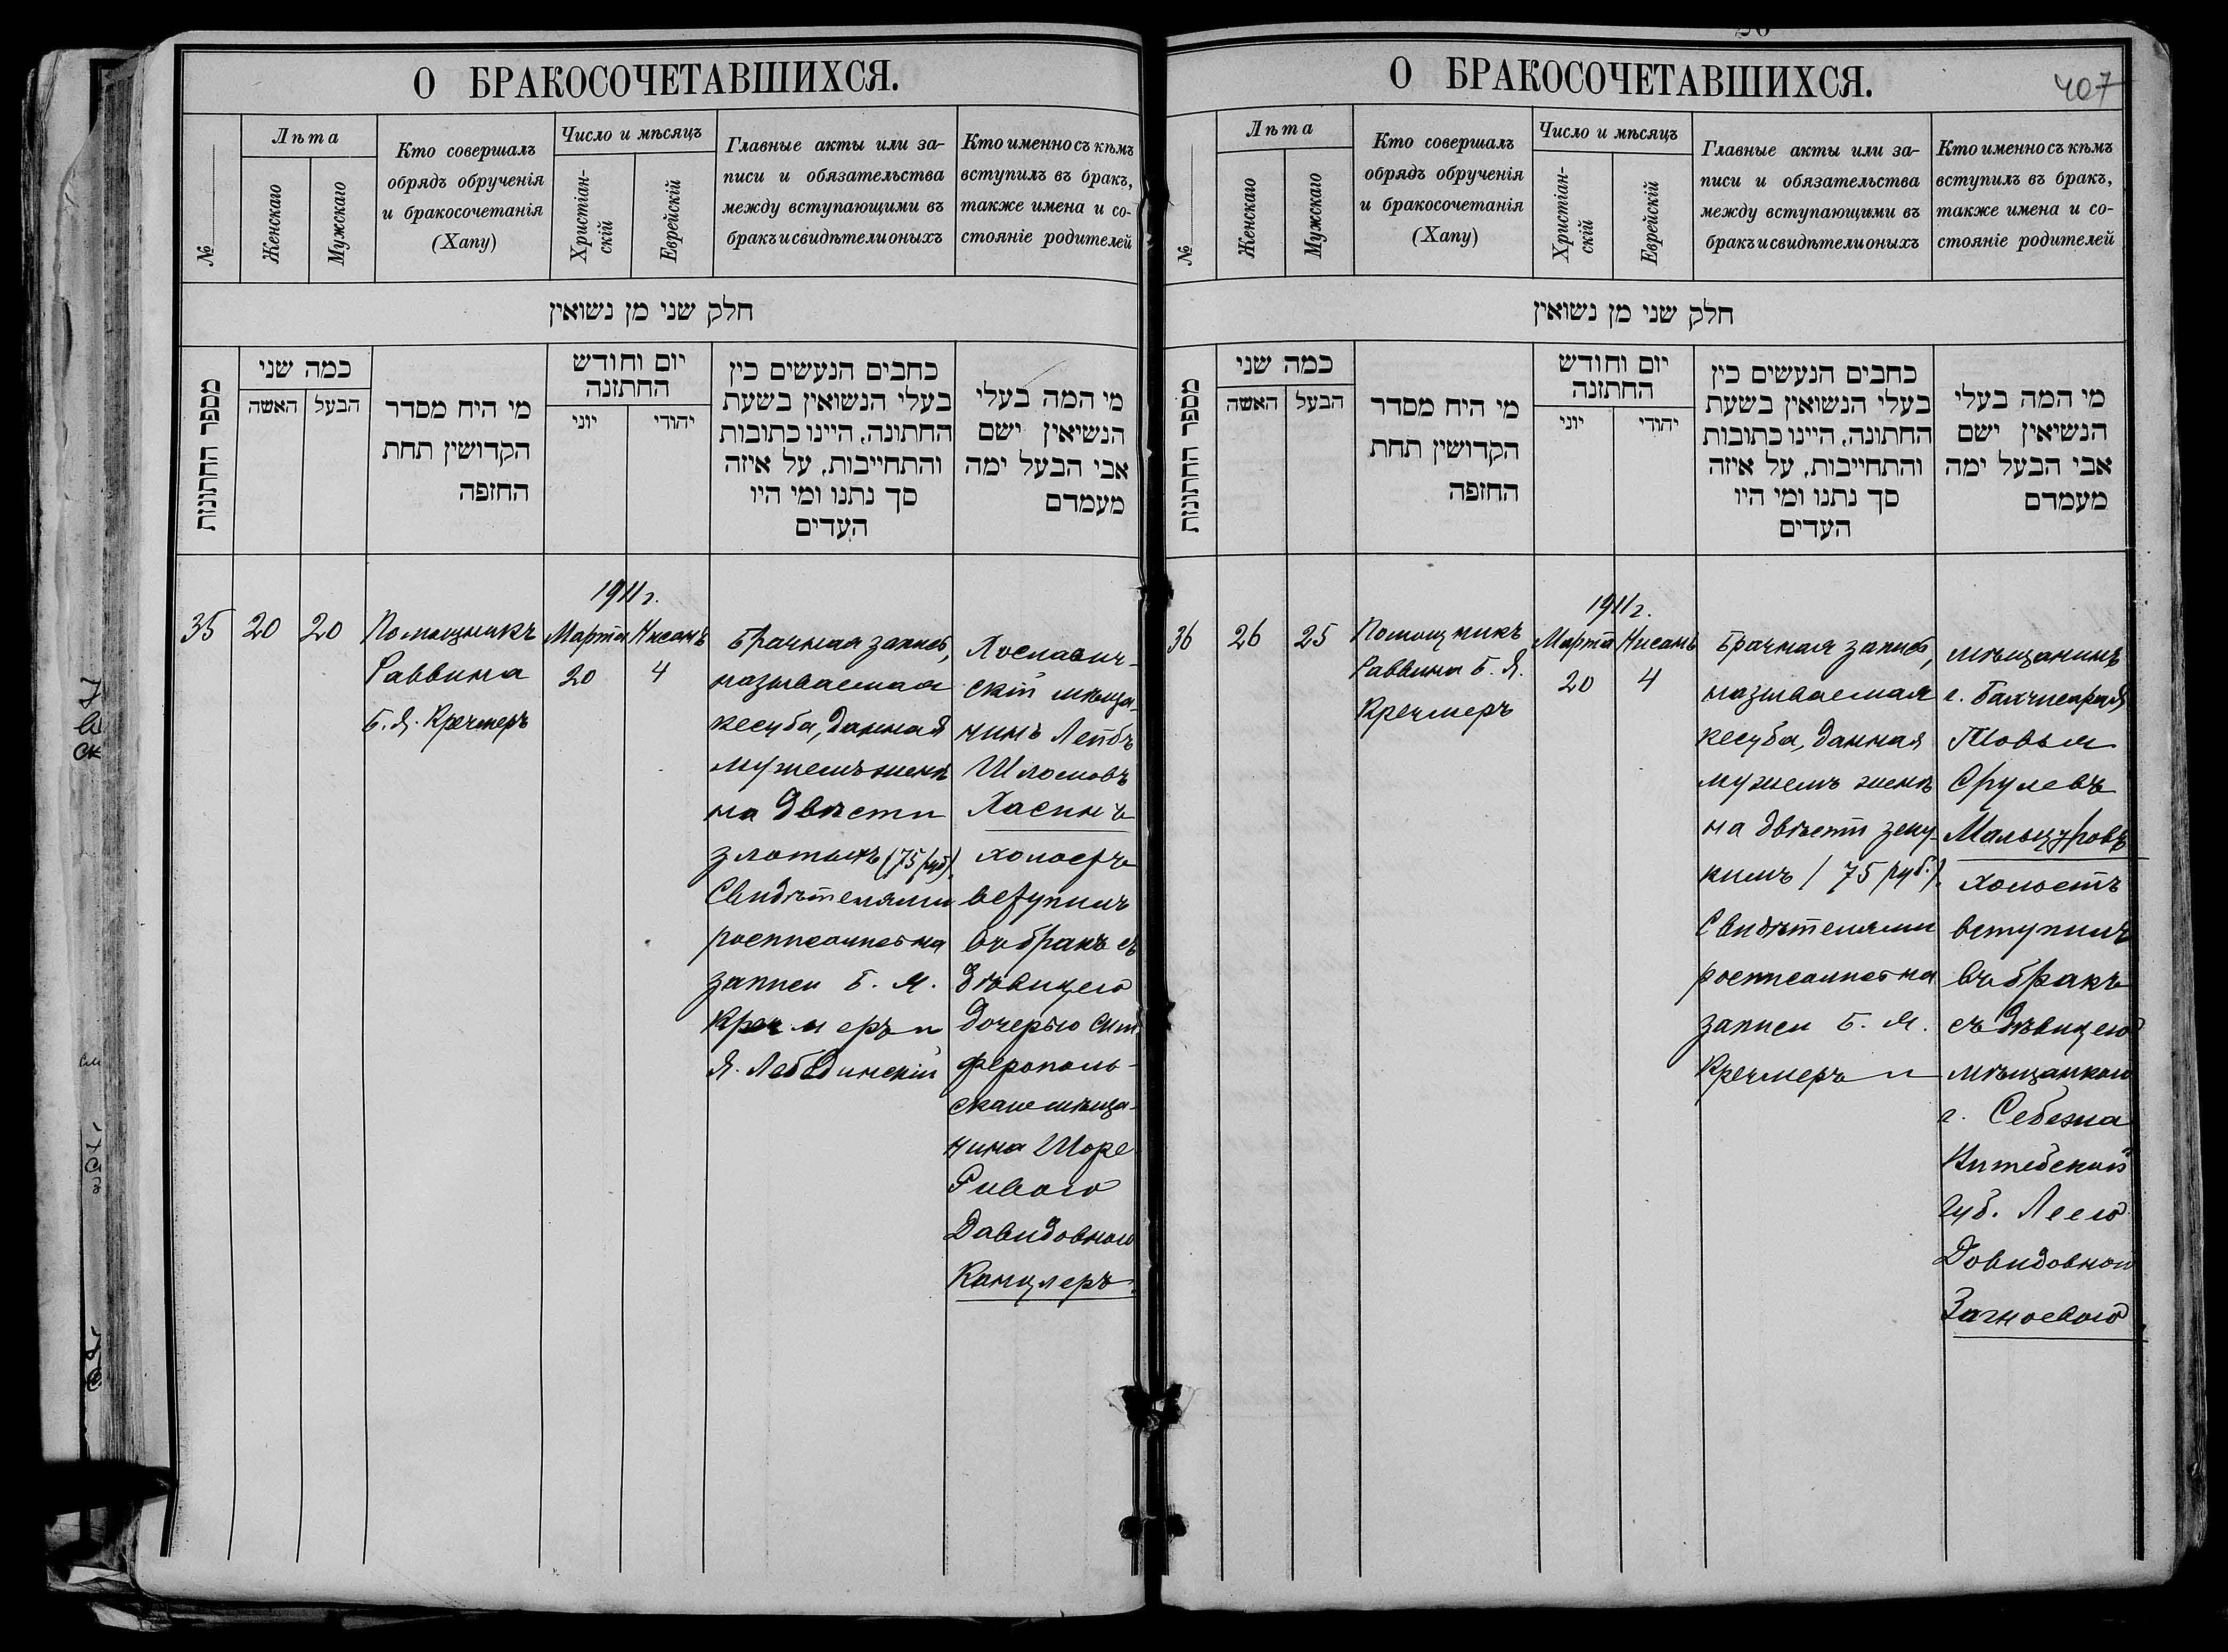 О БРАКОСОЧЕТАВШИХСЯ.
№
Лѣта
Женскаго
Мужскаго
Кто совершалъ
обрядъ обрученія
и бракосочетанія
(Хапу)
Число и мѣсяцъ
Христіан-
скій
Еврейскій
Главные акты или за-
писи и обязательства
между вступающими въ
бракъ и свидѣтели оныхъ
Кто именно съ кѣмъ
вступилъ въ бракъ,
также имена и со-
стояніе родителей
חלק שני מן נשואין
מספר החתונות
כמה שני
האשה
הבעל
מי היח מסדר
הקדושין תחת
החזפה
יום וחודש
החתזנה
יוני
יהודי
כחבים הנעשים כין
בעלי הנשואין בשעת
החתונה, היינו כתובות
והתחייבות, על איזה
סך נתנו ומי היו
העדים
מי המה בעלי
הנשיאין ישם
אבי הבעל ימה
מעמדם
35
20
20
Помощникъ
Раввина
Б. Я. Кречмеръ
1911 г.
Марта
20
Нисанъ
4
Брачная запись,
называемая
кесуба, данная
мужемъ женѣ
на двѣсти
злотыхъ (75 руб).
Свидѣтелями
росписались на
записи Б. Я.
Кречмеръ и
Я. Лебединскій
Хославич-
скій мѣща-
нинъ Лейбъ
Шлемовъ
Хасинъ
холостъ
вступилъ
въ бракъ съ
дѣвицею
дочерью Сим
ферополь-
скаго мѣща-
нина Шоре
Ривою
Давидовною
Канцлеръ.
О БРАКОСОЧЕТАВШИХСЯ.
407
№
Лѣта
Женскаго
Мужскаго
Кто совершалъ
обрядъ обрученія
и бракосочетанія
(Хапу)
Число и мѣсяцъ
Христіан-
скій
Еврейскій
Главные акты или за-
писи и обязательства
между вступающими въ
бракъ и свидѣтели оныхъ
Кто именно съ кѣмъ
вступилъ въ бракъ,
также имена и со-
стояніе родителей
חלק שני מן נשואין
מספר החתונות
כמה שני
האשה
הבעל
מי היח מסדר
הקדושין תחת
החזפה
יום וחודש
החתזנה
יוני
יהודי
כחבים הנעשים כין
בעלי הנשואין בשעת
החתונה, היינו כתובות
והתחייבות, על איזה
סך נתנו ומי היו
העדים
מי המה בעלי
הנשיאין ישם
אבי הבעל ימה
מעמדם
36
26
25
Помощникъ
Раввина Б. Я.
Кречмеръ
1911 г.
Марта
20
Нисанъ
4
Брачная запись,
называемая
кесуба, данная
мужемъ женѣ
на двѣсти зеку-
кимъ (75 руб.).
Свидѣтелями
росписались на
записи Б. Я.
Кречмеръ и
мѣщанинъ
г. Бахчисарая
Товья
Срулевъ
холостъ
вступилъ
въ бракъ
съ дѣвицею
мѣщанкою
г. Себежа
Витебской
губ. Леею
Довидовной